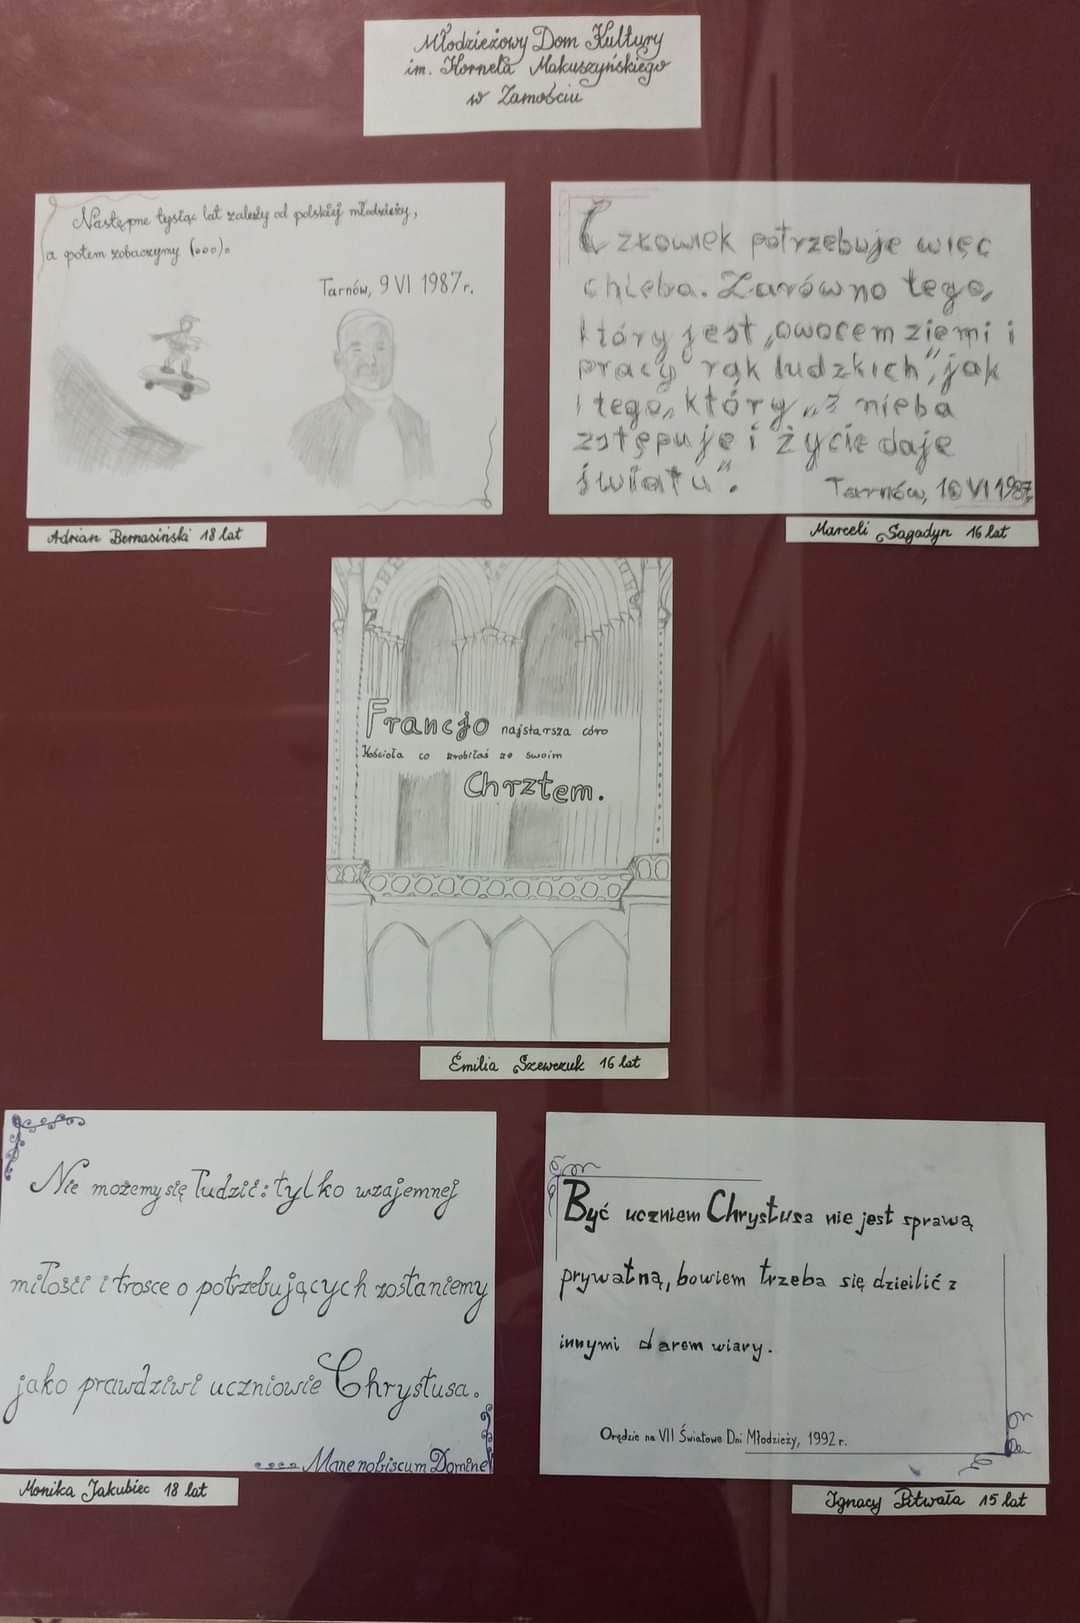 Młodzieżowy Dom Kultury
im. Kornela Makuszyńskiego
w Zamościu
Następne tysiąc lat zależy od polskiej młodzieży,
a potem zobaczymy (...).
Tarnów, 9 VI 1987r.
Adrian Bernasiński 18 lat
Człowiek potrzebuje więc
chleba. Zarówno tego,
który jest „owocem ziemi i
pracy rąk ludzkich", jak
i tego, który „z nieba
zstępuje i życie daje
światu".
Tarnów, 10 VI 1987r.
Marceli Sagadyn 16 lat
Francjo najstarsza córo
Kościoła co zrobiłaś ze swoim
Chrztem.
Emilia Szewczuk 16 lat
Nie możemy się łudzić: tylko wzajemnej
miłości i trosce o potrzebujących zostaniemy
jako prawdziwi uczniowie Chrystusa.
Mane nobiscum Domine
Monika Jakubiec 18 lat
Być uczniem Chrystusa nie jest sprawą
prywatną, bowiem trzeba się dzielić z
innymi darem wiary.
Orędzie na VII Światowe Dni Młodzieży, 1992 r.
Ignacy Pitwała 15 lat